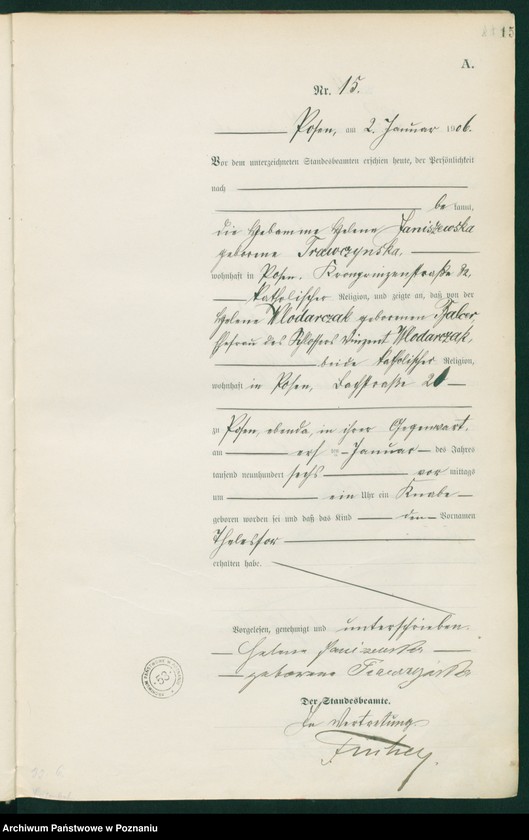 15
A.
Nr. 15.
Posen, am 2. Januar 1906.
Vor dem unterzeichneten Standesbeamten erschien heute, der Persönlichkeit
nach
be kannt,
die Hebamme Helene Janiszewska
geborene Trawczynska,
wohnhaft in Posen, Kronprinzenstraße
katholischer Religion, und zeigte an, daß von der
Helene Wlodarczak geborenen
Ehefrau des Schlossers Vinzent Wlodarczak,
beide katholischer Religion,
wohnhaft in Posen, Bachstraße
zu Posen, ebenda, in ihrer Gegenwart,
am ersten Januar des Jahres
tausend neunhundert sechs vor mittags
um ein Uhr ein Knabe
geboren worden sei und daß das Kind den Vornamen
Thelesfor
erhalten habe.
Vorgelesen, genehmigt und unterschrieben.
Helene Janiszewska
geborene
Der Standesbeamte.
In Vertretung.
53
Archiwum Państwowe w Poznaniu